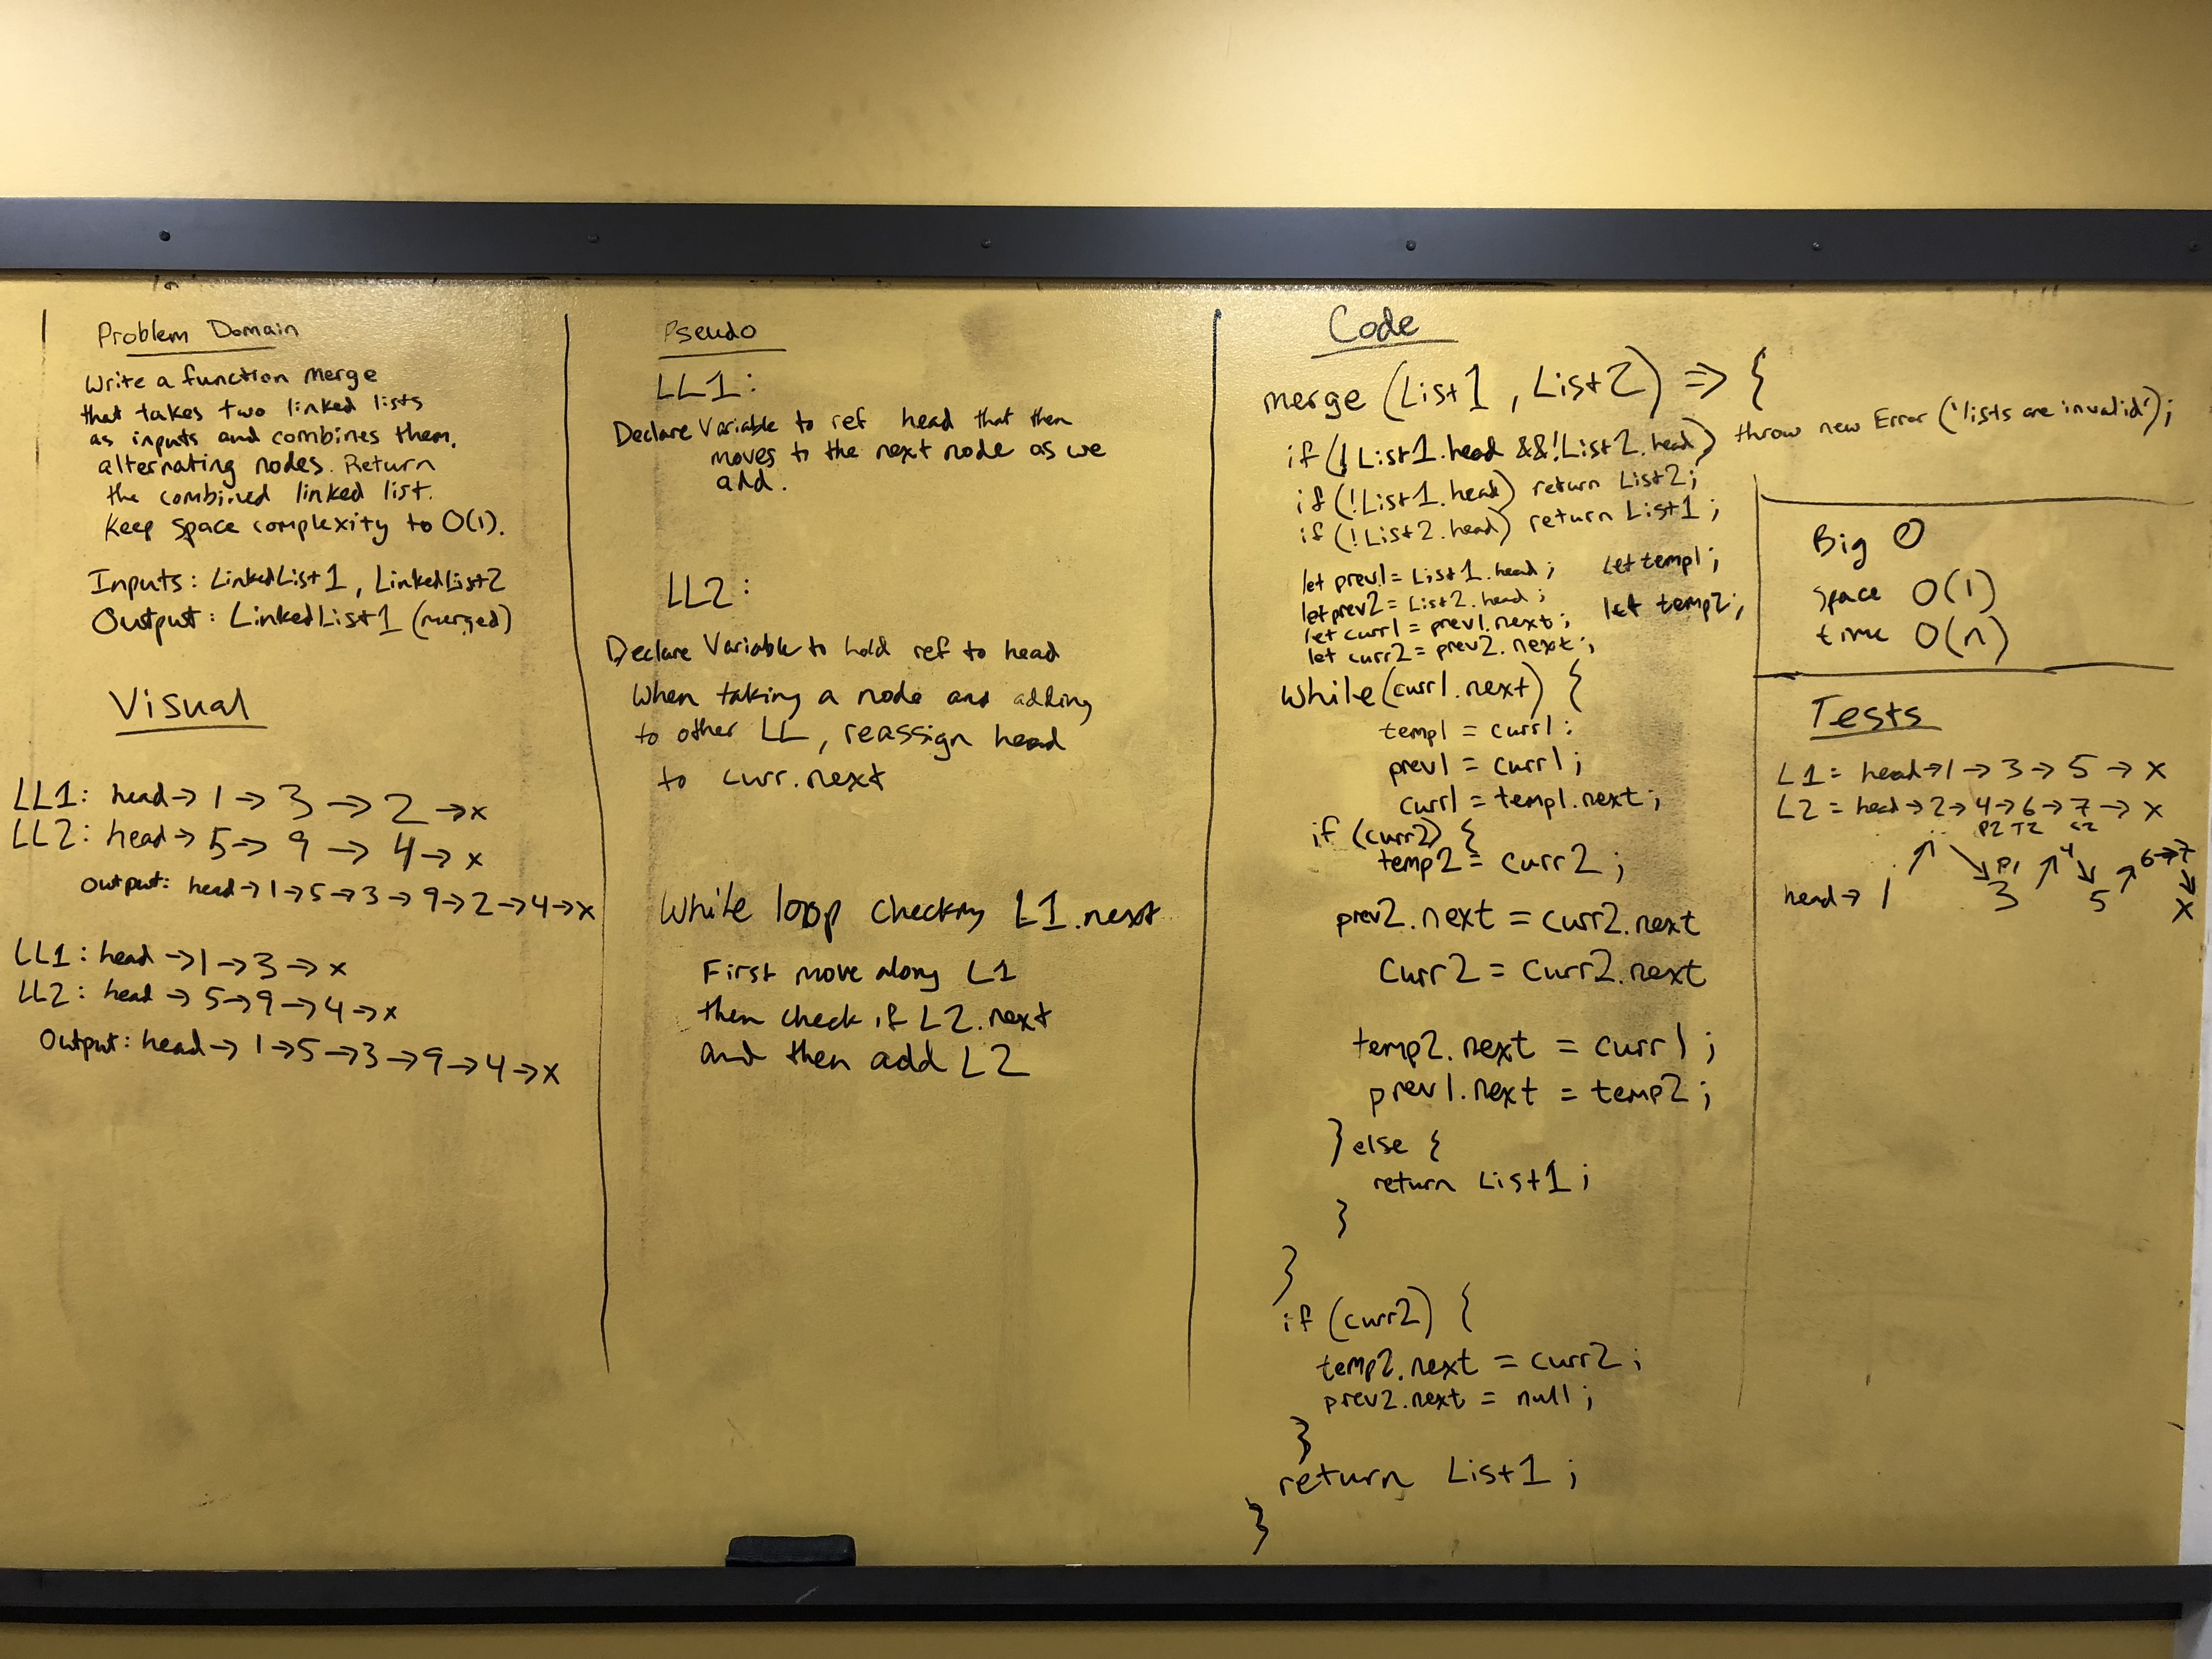 Problem Domain
Write a function merge
that takes two linked lists
as inputs and combines them,
alternating nodes. Return
the combined linked list.
Keep space complexity to O(1).
Inputs: LinkedList1, LinkedList2
Output: LinkedList1 (merged)
Visual
LL1: head → 1 → 3 → 2 → x
LL2: head → 5 → 9 → 4 → x
Output: head → 1 → 5 → 3 → 9 → 2 → 4 → x
LL1: head → 1 → 3 → x
LL2: head → 5 → 9 → 4 → x
Output: head → 1 → 5 → 3 → 9 → 4 → x
Pseudo
LL1:
Declare Variable to ref head that then
moves to the next node as we
add.
LL2:
Declare Variable to hold ref to head
When taking a node and adding
to other LL, reassign head
to curr.next
While loop checking L1.next
First move along L1
then check if L2.next
and then add L2
Code
merge (List1, List2) => {
if (!List1.head &&!List2.head) throw new Error ('lists are invalid');
if (!List1.head) return List2;
if (!List2.head) return List1;
let prev1 = List1.head; let temp1;
let prev2 = List2.head; let temp2;
let curr1 = prev1.next;
let curr2 = prev2.next;
while (curr1.next) {
temp1 = curr1;
prev1 = curr1;
curr1 = temp1.next;
if (curr2) {
temp2 = curr2;
prev2.next = curr2.next
curr2 = curr2.next
temp2.next = curr1;
prev1.next = temp2;
} else {
return List1;
}
}
if (curr2) {
temp2.next = curr2;
prev2.next = null;
}
return List1;
}
Big O
space O(1)
time O(n)
Tests
L1 = head → 1 → 3 → 5 → X
L2 = head → 2 → 4 → 6 → 7 → X
P2 T2 C2
P1 4 6 → 7
head → 1 3 5 X